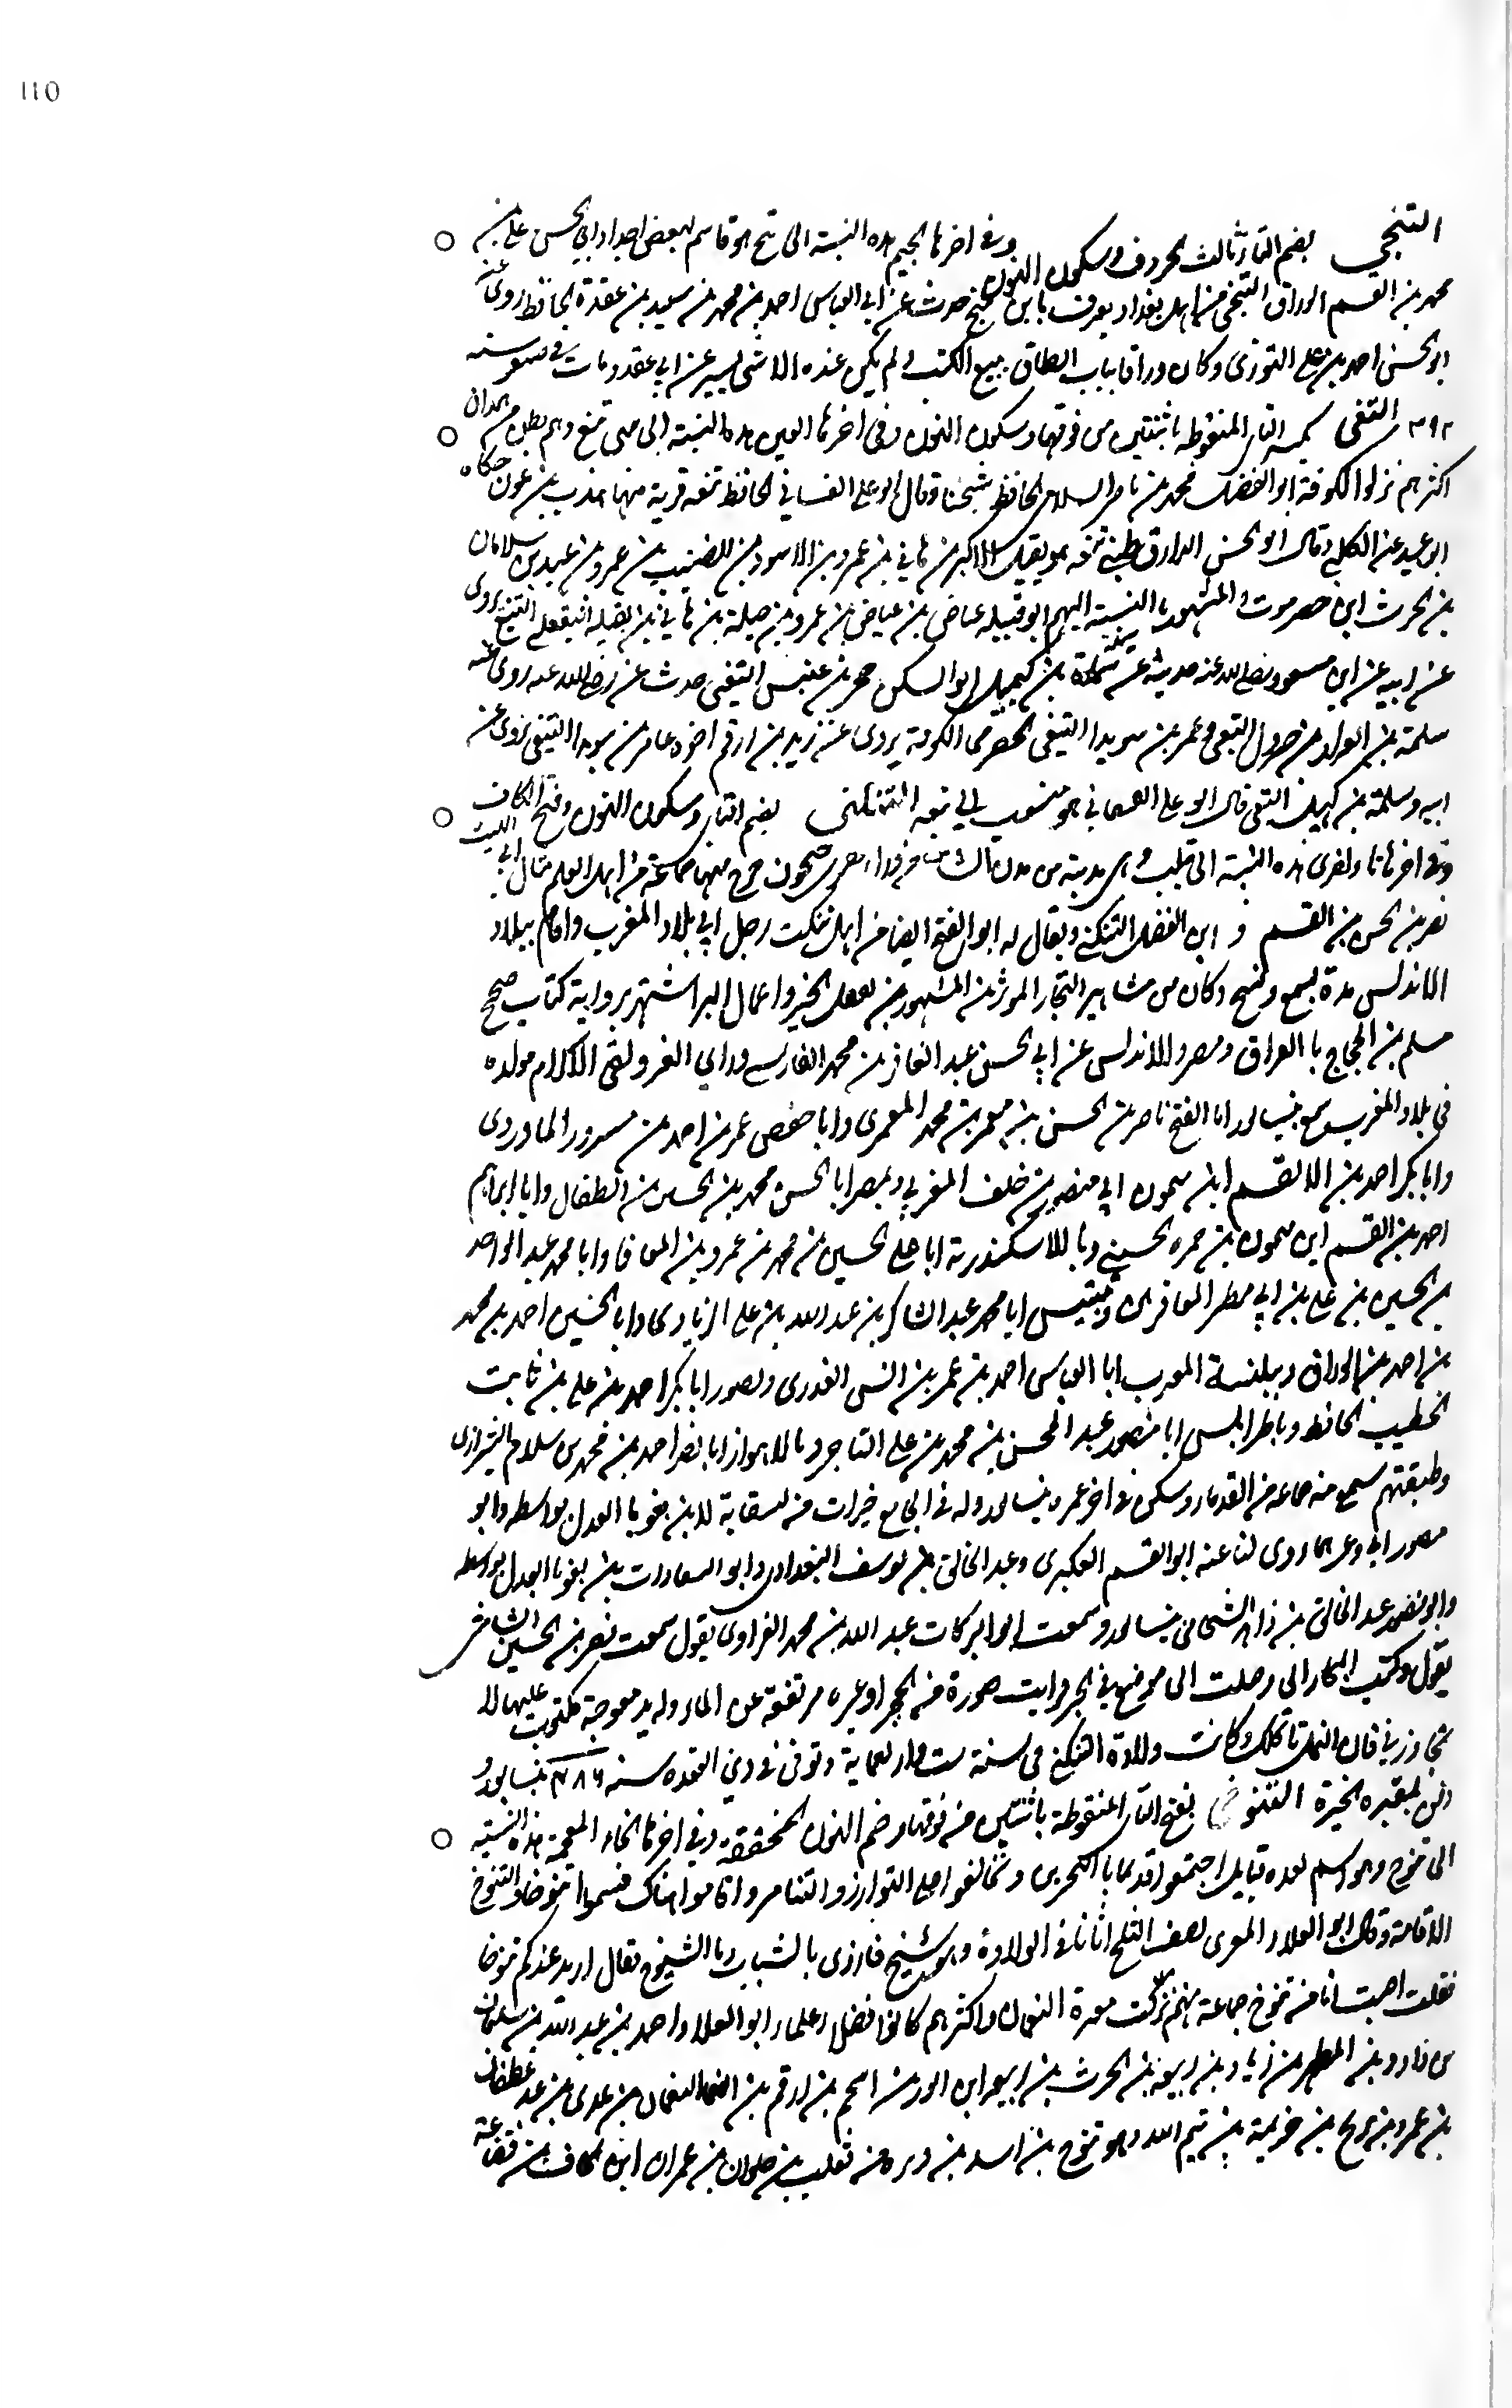 110
التنجي بضم التاء ثالث الحروف وسكون النون وفي اخرها الجيم هذه النسبة الى تنج هو قاسم لبعض اجداد ابي الحسن علي بن
محمد بن القسم الوراق التنجي من اهل بغداد يعرف بابن تنج حدث عن ابي العباس احمد بن محمد بن سعيد بن عقدة الحافظ روى عنه
ابو الحسن احمد بن علي التوزى وكان وراقا بباب الطاق يبيع الكتب ولم يكن عنده الا شى يسير عن ابي عقده ومات في صفر سنه
٣٩٢ التنعى بكسر التاء المنقوطة باثنتين من فوقها وسكون النون وفي اخرها العين هذه النسبة الى بنى تنع وهم بطن من همدان
اكثرهم نزلوا الكوفة ابو الفضل محمد بن ناصر السلامى الحافظ شيخنا وقال ابو على الغساني الحافظ تنعه قرية منها جندب بن عون حكاه
ابو عبيد عن الكلبي وقال ابو الحسن الدارقطني تنعه هو بقيل الاكبر بن هاني بن عمرو بن الاسود بن الضبيب بن عمرو بن عبد بن سلامان
بن الحرث ابن حضرموت والمشهور بالنسبة اليهم ابو قبيلة عياض بن عياض بن عمرو بن جبلة بن هاني بن بقيلة التنعى روى
عن ابيه عن ابن مسعود رضي الله عنه حديثه عن سلمة بن كهيل ابو السكن حجر بن عنبس التنعى حدث عن رضي الله عنه روى عنه
سلمة بن العزار بن جرول التنعى وعمر بن سويد التنعى الحضرمى الكوفة يروى عن زيد بن ارقم اخوه عامر بن سويد التنعى يروى عن
ابيه وسلمة بن كهيل التنعى قال ابو على الغسانى هو منسوب الى تنعه التنكتى بضم التاء وسكون النون وفتح الكاف
وفي اخرها تاء اخرى هذه النسبة الى تنكت وهى مدينة من مدن الشاش من وراء نهر سيحون خرج منها جماعة من اهل العلم مثال ابي الليث
نصر بن الحسن بن القسم و ابن الفضل التنكتي ويقال له ابو الفتح ايضا من اهل تنكت رحل الى بلاد المغرب واقام ببلاد
الاندلس مدة يسمع وينسخ وكان من مشاهير التجار الموثرين المشهورين بفعل الخير واعمال البر اشتهر برواية كتاب صحيح
مسلم بن الحجاج بالعراق ومصر والاندلس عن ابي الحسين عبد الغافر بن محمد الفارسى وراى الغر ولقى الاكرام مولده
في بلاد المغرب سمع بنيسابور ابا الفتح ناصر بن الحسن بن معمر بن محمد العمرى وابا حفص عمر بن احمد بن مسرور الماوردى
وابا بكر احمد بن ابى القسم ابن ميمون ابى منصور بن خلف المغربى وبمصر ابا الحسن محمد بن الحسين بن الطفال وابا ابراهيم
احمد بن القسم ابن ميمون بن حمزه الحسيني وبالاسكندرية ابا على الحسين بن محمد بن عمرو بن المعافا وابا محمد عبد الواحد
بن الحسين بن على بن ابى مطر المعافرى وبتنيس ابا محمد عبد الشاكر بن عبد الله بن على الزيادى وابا الحسين احمد بن محمد
بن احمد بن الوراق وببلنسة المغرب ابا العباس احمد بن عمر بن انس العذرى وبصور ابا بكر احمد بن على بن ثابت
الخطيب الحافظ وباطرابلس ابا منصور عبد المحسن بن محمد بن على التاجر وبالاهواز ابا نصر احمد بن محمد بن سلام الشيرازى
وطبقتهم سمع منه جماعة من القدماء وسكن في اخر عمره نيسابور وله في الجامع خيرات من السقاية لابن بغوبا العدل بواسط وابو
منصور روى لنا عنه ابو القسم العكبرى وعبد الخالق بن يوسف البغدادى وابو السعادات بن بغوبا العدل بواسط
وابو نصر عبد الخالق بن زاهر الشحامى بنيسابور وسمعت ابو البركات عبد الله بن محمد الفراوى يقول سمعت نصر بن الحسين الشاشى
يقول وكتب البحار الى وصلت الى موضع في البحر فرايت صورة من الحجر او غيره مرتفعة عن الماء وله يد معوجة مكتوب عليها لا
تجاوز بي فان النمل تاكلك وكانت ولادة التنكتى فى سنة ست واربعماية وتوفى في ذي القعده سنه ٤٨٦ بنيسابور و
دفن بمقبره الحيرة التنوخى بفتح التاء المنقوطة باثنتين من فوقها وضم النون المخففة وفي اخرها الخاء المعجمة هذه النسبة
الى تنوخ وهو اسم لعده قبايل اجتمعوا قديما بالبحرين وتحالفوا على التوازر والتناصر واقاموا هناك فسموا تنوخا والتنوخ
الاقامة وقال ابو العلاء المعرى يصف الثلج اتانا في الولادة وهو شيخ فازرى بالشباب وبالشيوخ فقال اريد عندكم تنوخا
فقلت اصبت انا من تنوخ جماعة منهم نزلت معرة النعمان واكثرهم كانوا فضلاء علماء ابو العلاء احمد بن عبد الله بن سليمان
بن داود بن المطهر بن زياد بن ربيعة بن الحرث بن ربيعة ابن انور بن اسحم بن ارقم بن النعمان بن عدى بن عبد غطفان
بن عمرو بن بريح بن خزيمة بن تيم الله وهو تنوخ بن اسد بن وبره بن تغلب بن حلوان بن عمران ابن الحاف بن قضاعة